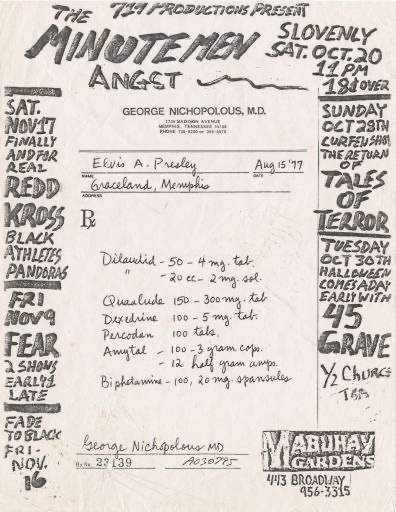 719 PRODUCTIONS PRESENT
THE
MINUTEMEN
SLOVENLY
SAT. OCT. 20
11 PM
18 & OVER
ANGST
SAT.
NOV 17
FINALLY
AND FOR
REAL
REDD
KROSS
BLACK
ATHLETES
PANDORAS
FRI
NOV 9
FEAR
2 SHOWS
EARLY &
LATE
FADE
TO BLACK
FRI.
NOV.
16
GEORGE NICHOPOLOUS, M.D.
1734 MADISON AVENUE
MEMPHIS, TENNESSEE
PHONE
Elvis A. Presley Aug 15 '77
NAME DATE
Graceland, Memphis
ADDRESS
Rx
Dilaudid - 50 - 4 mg. tab.
" - 20 cc - 2 mg. sol.
Quaalude 150 - 300 mg. tab
Dexedrine 100 - 5 mg. tab.
Percodan 100 tabs.
Amytal - 100 - 3 gram caps.
- 12 half gram amps.
Biphetamine - 100, 20 mg. spansules
George Nichopolous MD
Rx No. 23139 A030795
SUNDAY
OCT 28TH
CURFEW SHOW
THE RETURN
OF
TALES
OF
TERROR
TUESDAY
OCT 30TH
HALLOWEEN
COMES A DAY
EARLY WITH
45
GRAVE
1/2 CHURCH
TBA
MABUHAY
GARDENS
443 BROADWAY
956-3315